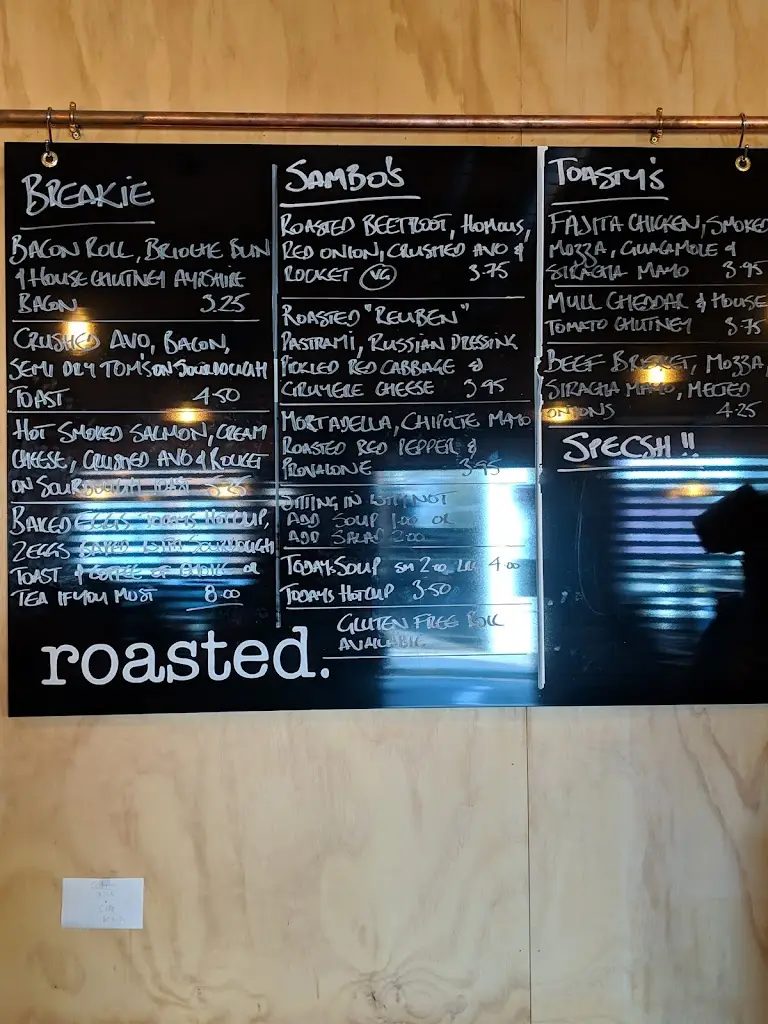 BREAKIE
BACON ROLL, BRIOCHE BUN
& HOUSE CHUTNEY AYRSHIRE
BACON 3.25
CRUSHED AVO, BACON,
SEMI DRY TOM'S ON SOURDOUGH
TOAST 4.50
HOT SMOKED SALMON, CREAM
CHEESE, CRUSHED AVO & ROCKET
ON SOURDOUGH TOAST 5.25
BAKED EGGS TODAYS HOTCUP,
2 EGGS BAKED WITH SOURDOUGH
TOAST & COFFEE OF CHOICE OR
TEA IF YOU MUST 8.00
roasted.
SAMBO'S
ROASTED BEETROOT, HOMOUS,
RED ONION, CRUSHED AVO &
ROCKET VG 3.75
ROASTED "REUBEN"
PASTRAMI, RUSSIAN DRESSING
PICKLED RED CABBAGE &
GRUYERE CHEESE 3.95
MORTADELLA, CHIPOTLE MAYO
ROASTED RED PEPPER &
PROVALONE 3.95
SITTING IN WHY NOT
ADD SOUP 1.00 OR
ADD SALAD 2.00
TODAY SOUP SM 2.00 LRG 4.00
TODAYS HOTCUP 3.50
GLUTEN FREE ROLL
AVAILABLE
TOASTY'S
FAJITA CHICKEN, SMOKED
MOZZA, GUACAMOLE &
SIRACHA MAYO 3.95
MULL CHEDDAR & HOUSE
TOMATO CHUTNEY 3.75
BEEF BRISKET, MOZZA,
SIRACHA MAYO, MELTED
ONIONS 4.25
SPECSH!!